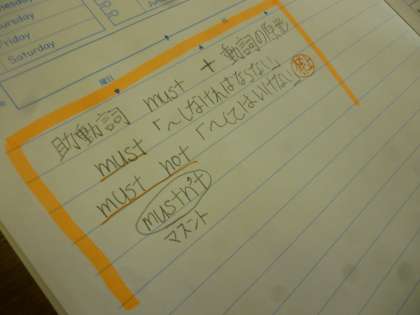 Wednesday
Thursday
Friday
Saturday
曜日
助動詞 must + 動詞の原型
must 「〜しなければならない」
must not 「〜してはいけない」 禁止
mustn't
マスント